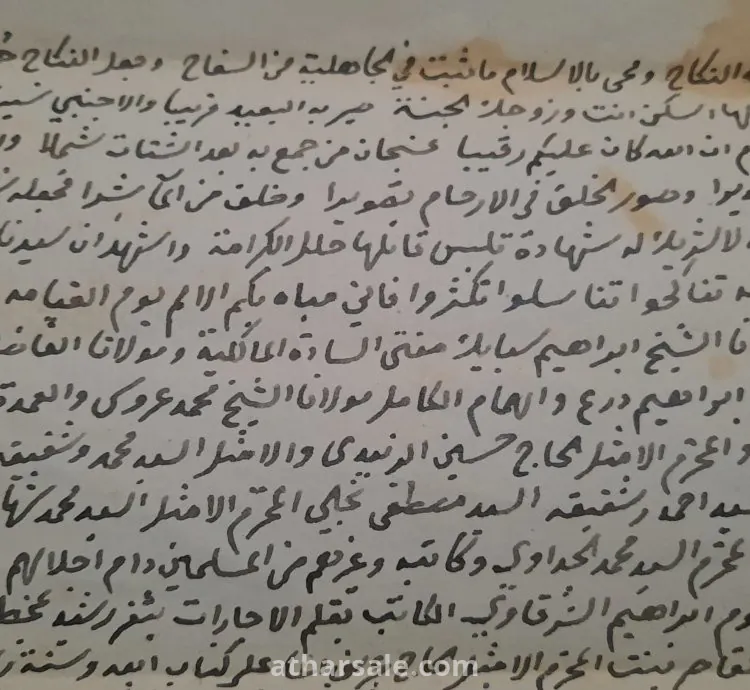 النكاح ومحى بالاسلام ما ثبت في الجاهلية من السفاح وجعل النكاح
لها اسكن انت وزوجك الجنة صير به البعيد قريبا والاجنبي نسيبا
ان الله كان عليكم رقيبا فسبحان من جمع به بعد الشتات شملا
وصور الخلق في الارحام تصويرا وخلق من الماء بشرا فجعله
لا شريك له شهادة تلبس قائلها حلل الكرامة واشهد ان سيدنا
تناكحوا تناسلوا تكثروا فاني مباه بكم الامم يوم القيامه
الشيخ ابراهيم سعايك مفتى السادة المالكية ومولانا
ابراهيم درع والهمام الكامل مولانا الشيخ محمد عروس والعمدة
والمحترم الامثل الحاج حسين الرشيدى والامثل السيد محمد وشقيقه
احمد وشقيقه السيد مصطفى المحترم الامثل السيد محمد
المحترم السيد محمد الحداوي وكاتبه وغيرهم من المسلمين دام اجلالهم
ابراهيم الشرقاوي الكاتب بقلم الاجارات بثغر رشيد
بنت المحترم الامثل الحاج على كتاب الله وسنة
atharsale.com